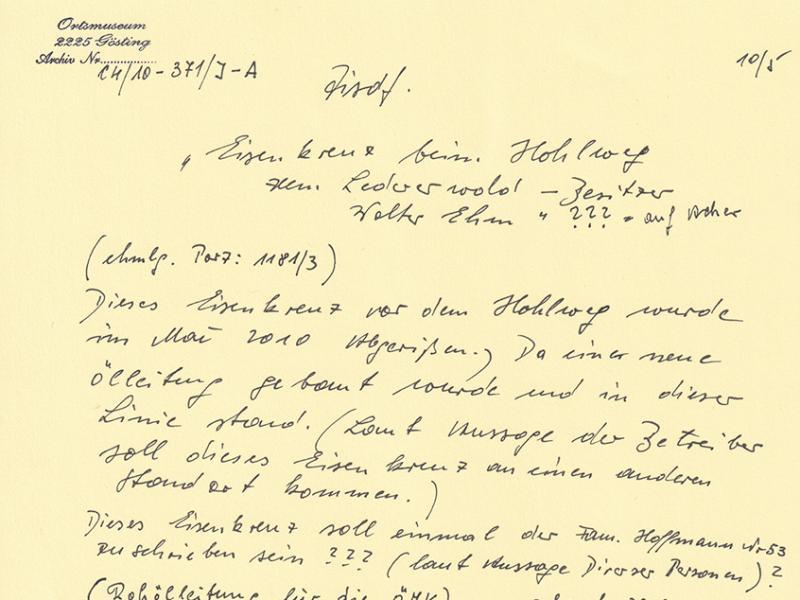 Ortsmuseum
2225 Gösting
Archiv Nr. C4/10-371/J-A
10/5
Zisdf.
„ Eisenkreuz beim Hohlweg
zem Ledererwold - Besitzer
Walter Ehm " ??? = auf Acker
(ehmlg. Parz: 1181/3)
Dieses Eisenkreuz vor dem Hohlweg wurde
im Mai 2010 Abgerißen.) Da eine neue
Ölleitung gebaut wurde und in dieser
Linie stand. (Laut Aussage der Betreiber
soll dieses Eisenkreuz an einen anderen
Standort kommen.)
Dieses Eisenkreuz soll einmal der Fam. Hoffmann Nr 53
zuschrieben sein ??? (laut Aussage Diverser Personen)?
(Rohölleitung für die ÖMV)